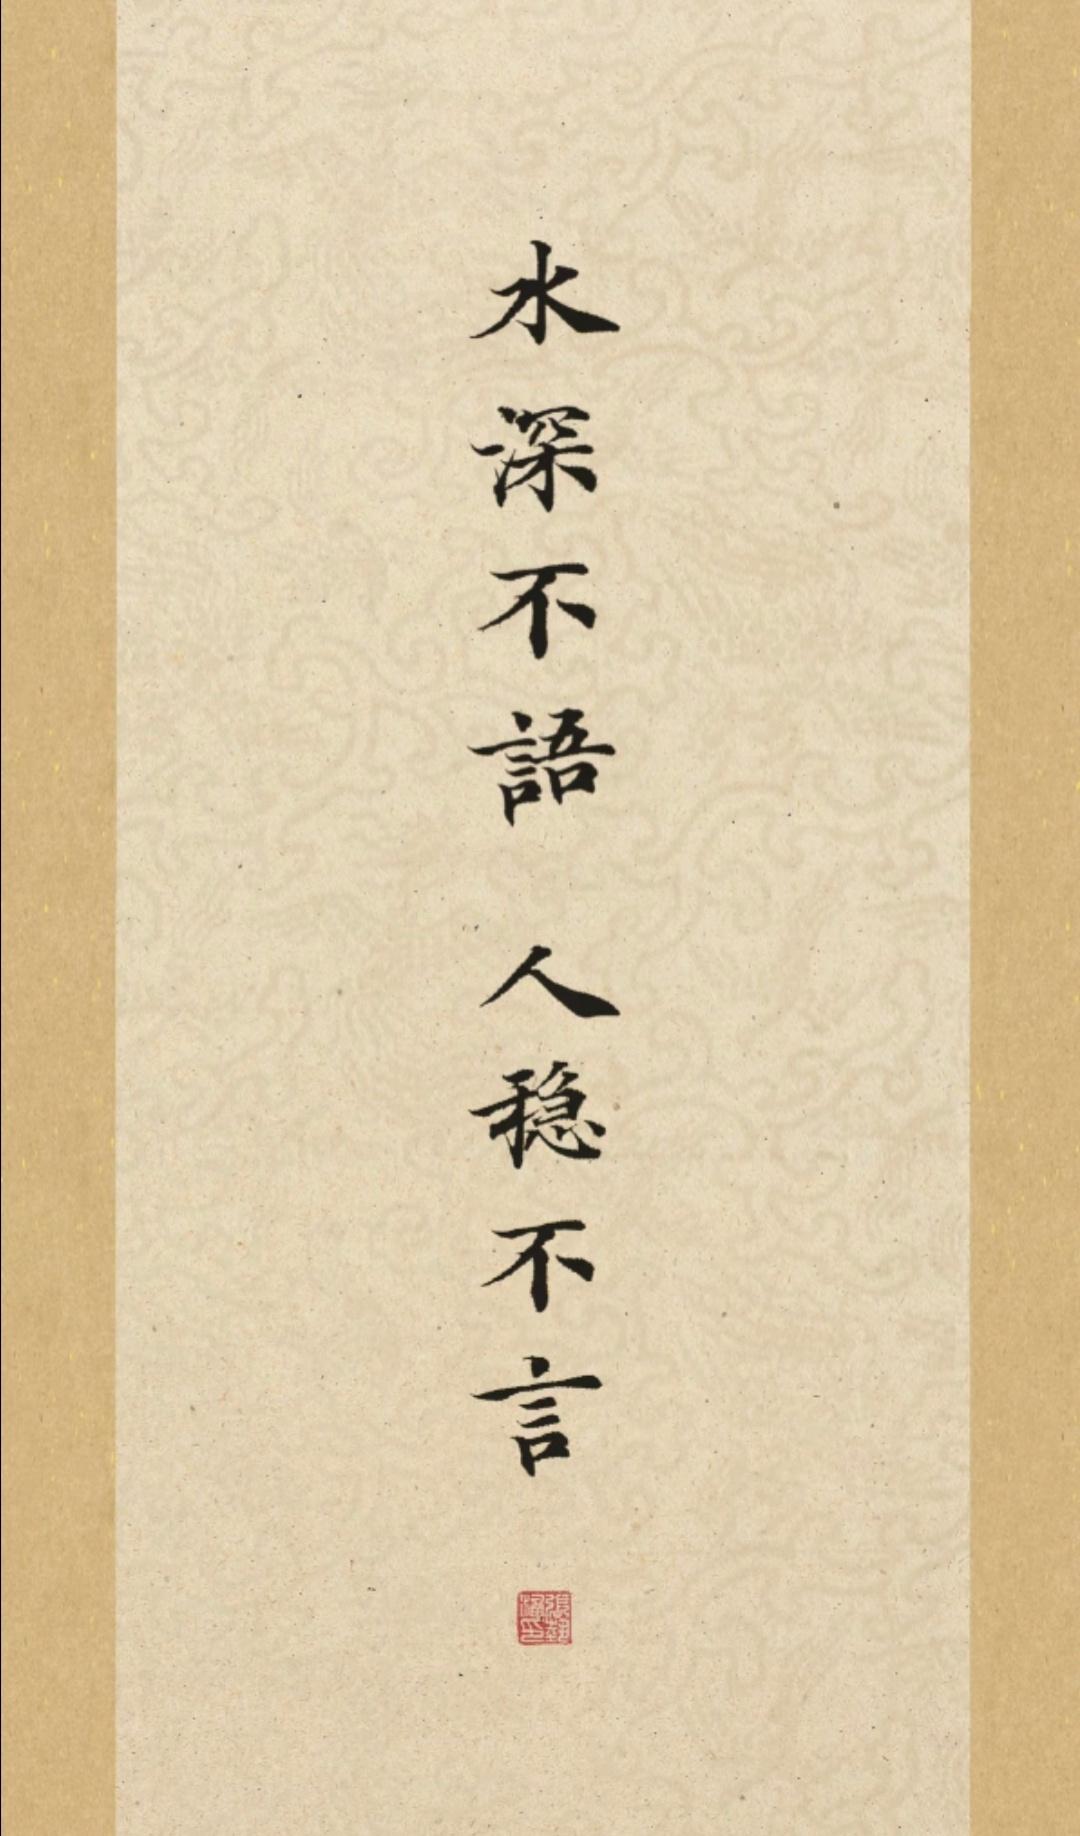 水深不語 人稳不言